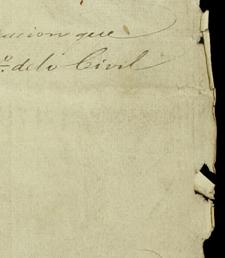 acion que
º. delo Civil